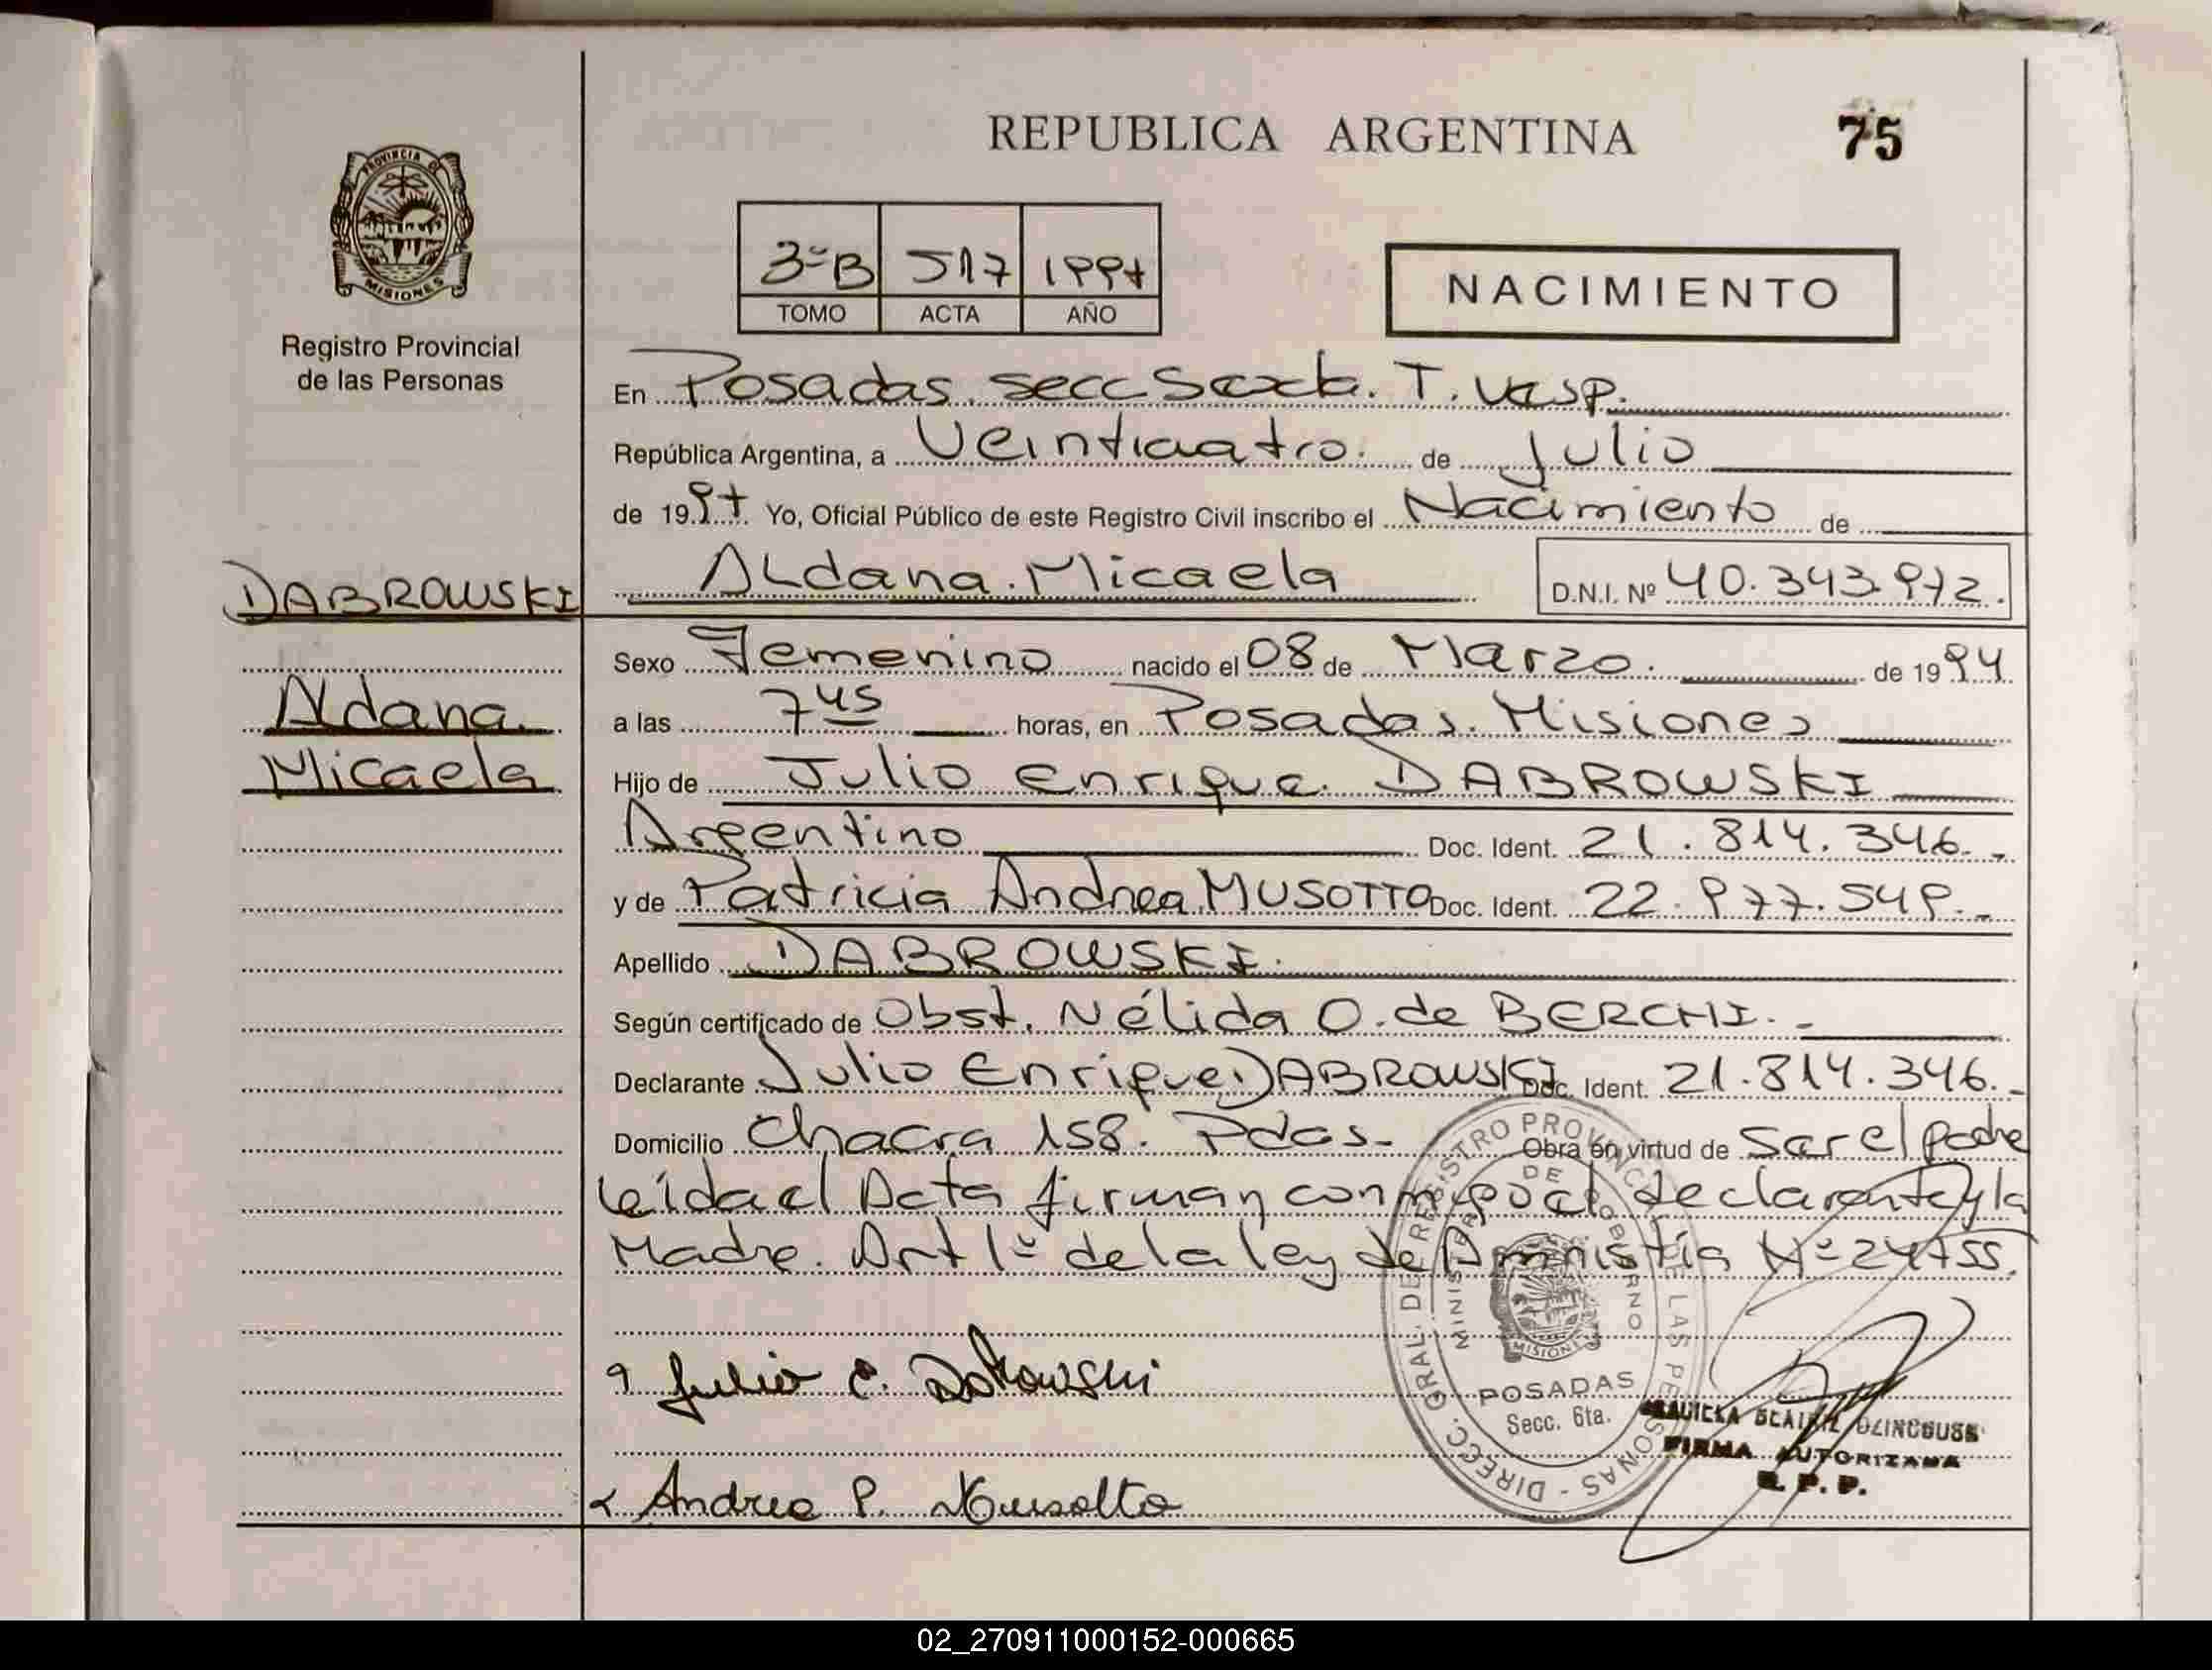 REPUBLICA ARGENTINA
75
PROVINCIA DE
MISIONES
Registro Provincial
de las Personas
3ºB 517 1997
TOMO ACTA AÑO
NACIMIENTO
En Posadas. Secc Sexta. T. Vesp.
República Argentina, a Veinticuatro. de Julio
de 1997. Yo, Oficial Público de este Registro Civil inscribo el Nacimiento de
DABROWSKI
Aldana Micaela
Aldana. Micaela
D.N.I. Nº 40.343.972.
Sexo Femenino nacido el 08 de Marzo. de 1994.
a las 7 45 horas, en Posadas. Misiones
Hijo de Julio Enrique DABROWSKI
Argentino Doc. Ident. 21.814.346.-
y de Patricia Andrea MUSOTTO Doc. Ident. 22.977.549.-
Apellido DABROWSKI.
Según certificado de Obst. Nélida O. de BERCHI.-
Declarante Julio Enrique DABROWSKI Doc. Ident. 21.814.346.-
Domicilio Chacra 158. Pdas- Obra en virtud de Ser el padre
leída el Acta firman conmigo el declarante y la
Madre. Art 1º de la ley de Amnistia Nº 24755.
Julio E. Dabrowski
Andrea P. Musotto
DIRECC. GRAL. DE REGISTRO PROVINCIAL DE LAS PERSONAS
MINISTERIO DE GOBIERNO
MISIONES
POSADAS
Secc. 6ta.
FIRMA AUTORIZADA
R. P. P.
02_270911000152-000665